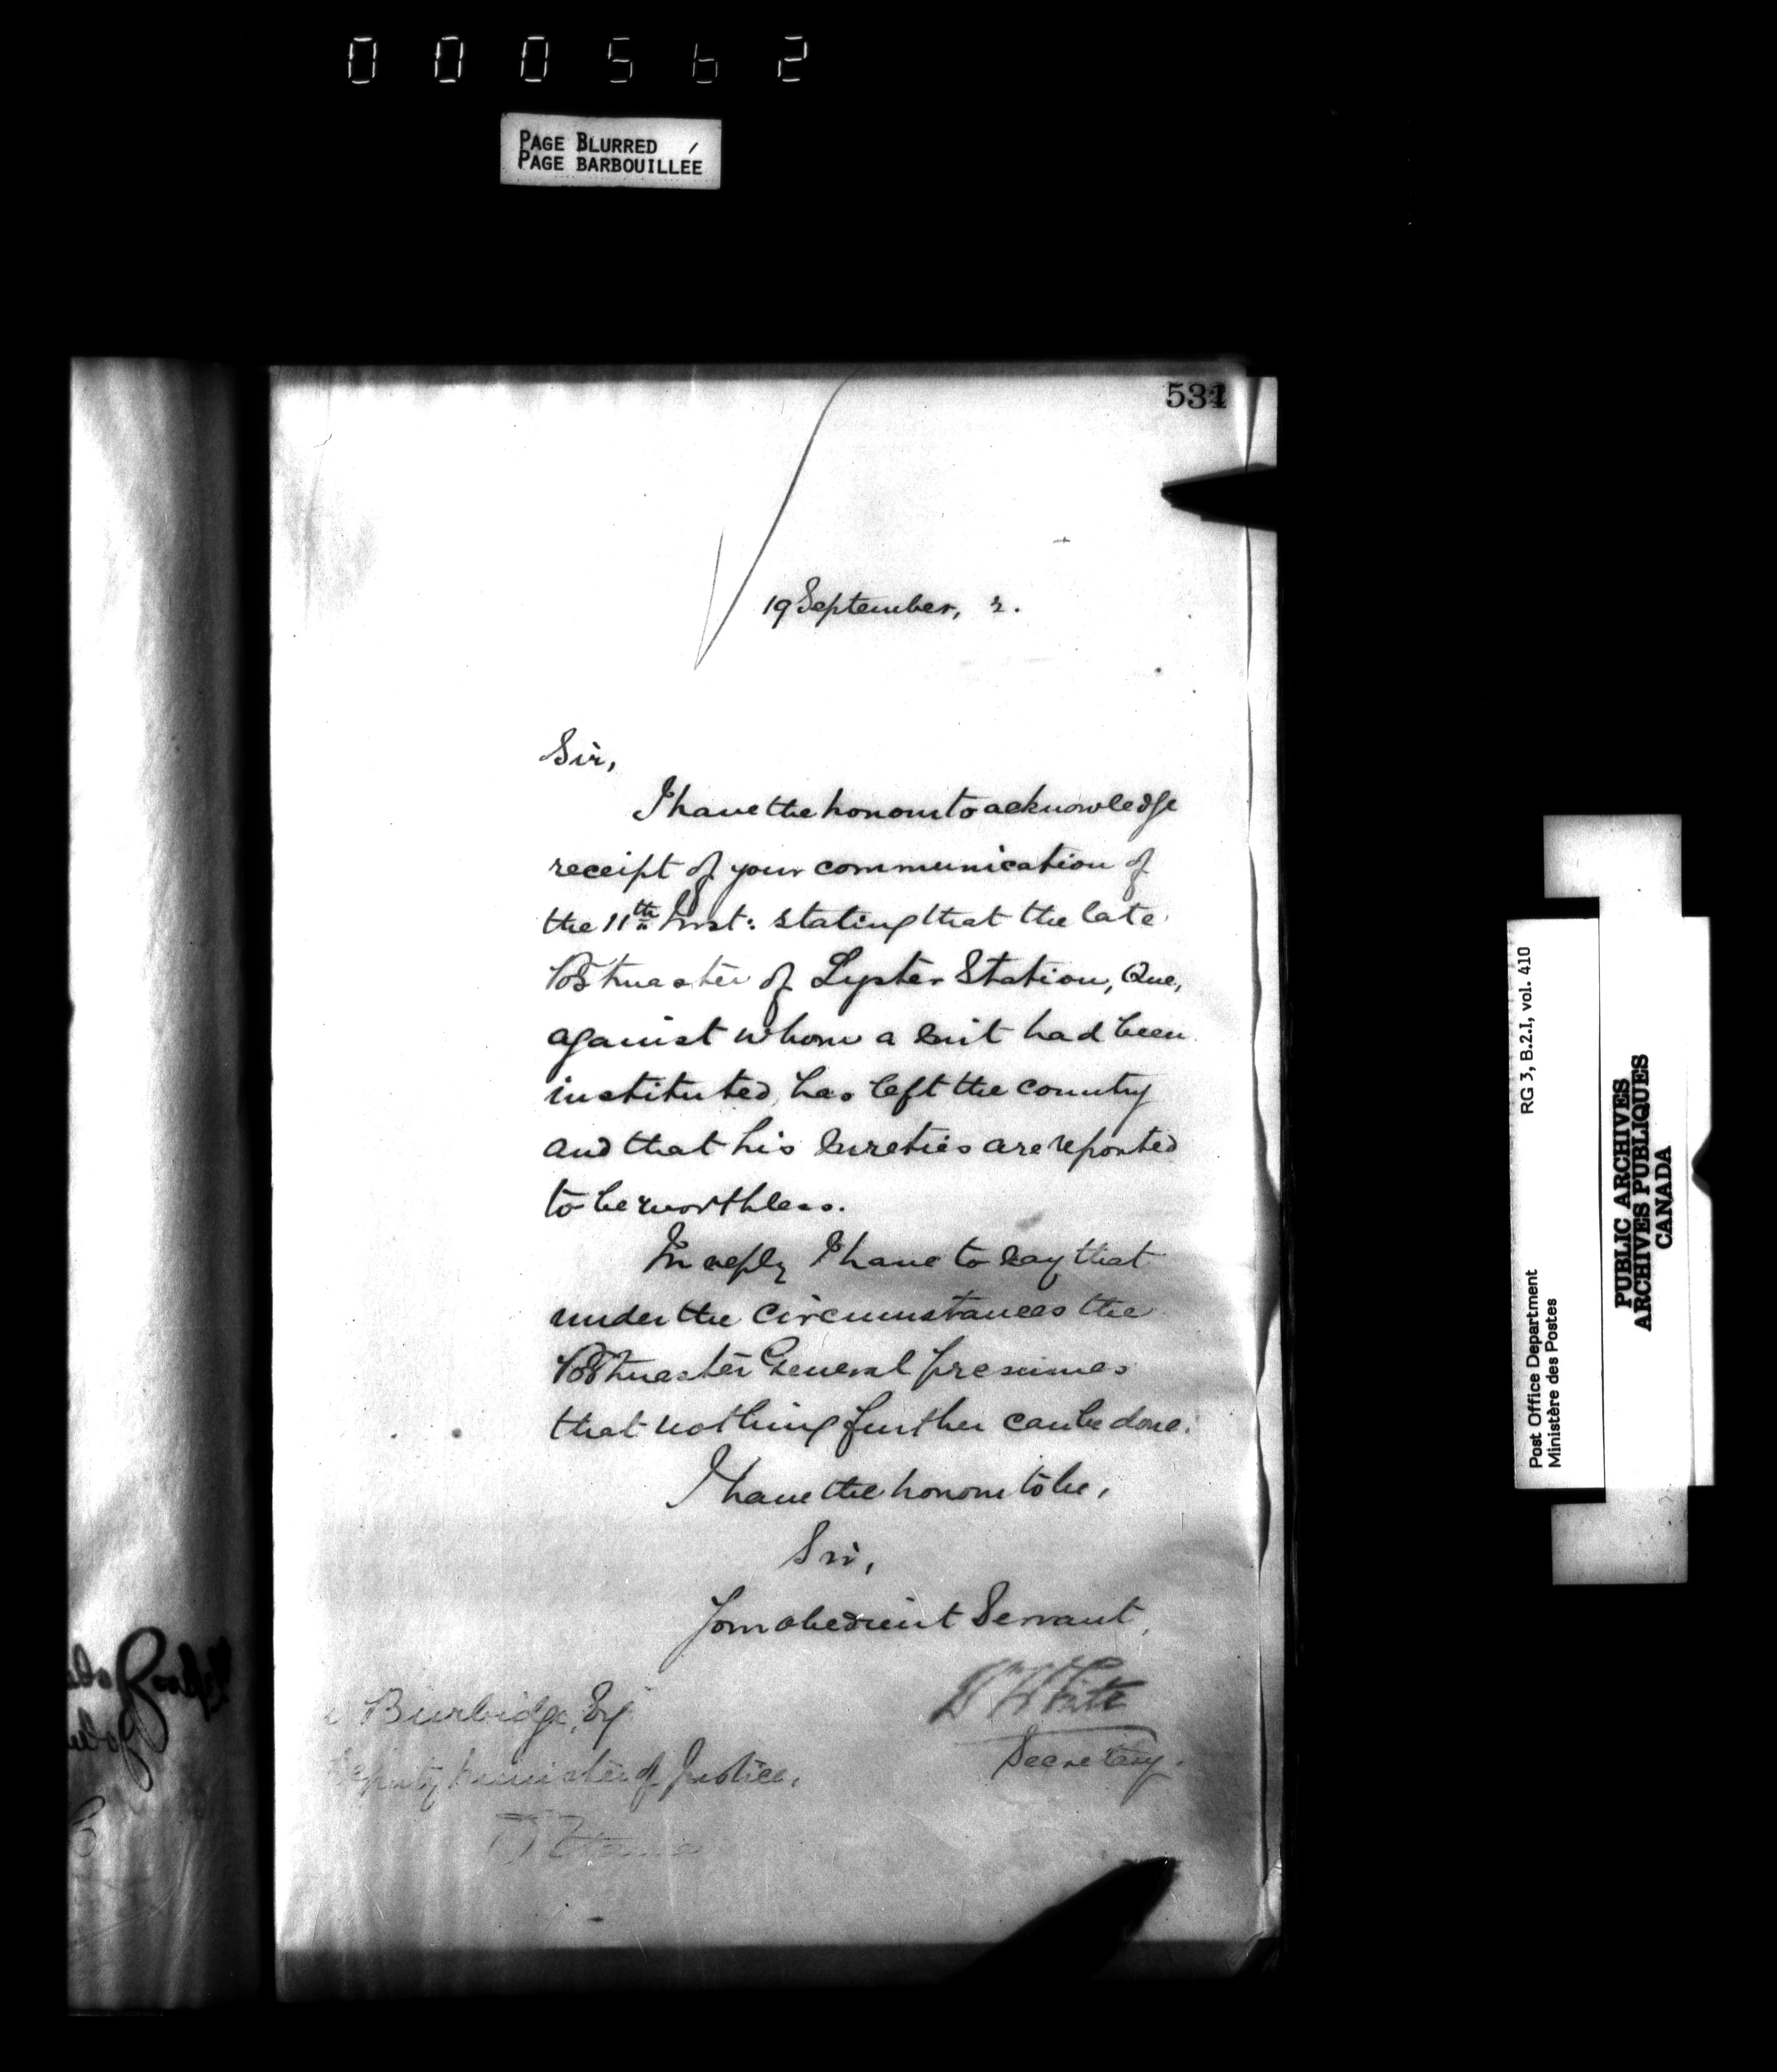 000562
PAGE BLURRED
PAGE BARBOUILLÉE
531
19 September, 2.
Sir,
I have the honour to acknowledge
receipt of your communication of
the 11th Inst: stating that the late
Postmaster of Lyster Station, Que,
against whom a suit had been
instituted, has left the country
and that his sureties are reported
to be worthless.
In reply I have to say that
under the circumstances the
Postmaster General presumes
that nothing further can be done.
I have the honour to be,
Sir,
Your obedient Servant,
W White
Secretary.
Burbidge, Esq
Deputy Minister of Justice,
Ottawa
RG 3, B.2.I, vol. 410
Post Office Department
Ministère des Postes
PUBLIC ARCHIVES
ARCHIVES PUBLIQUES
CANADA